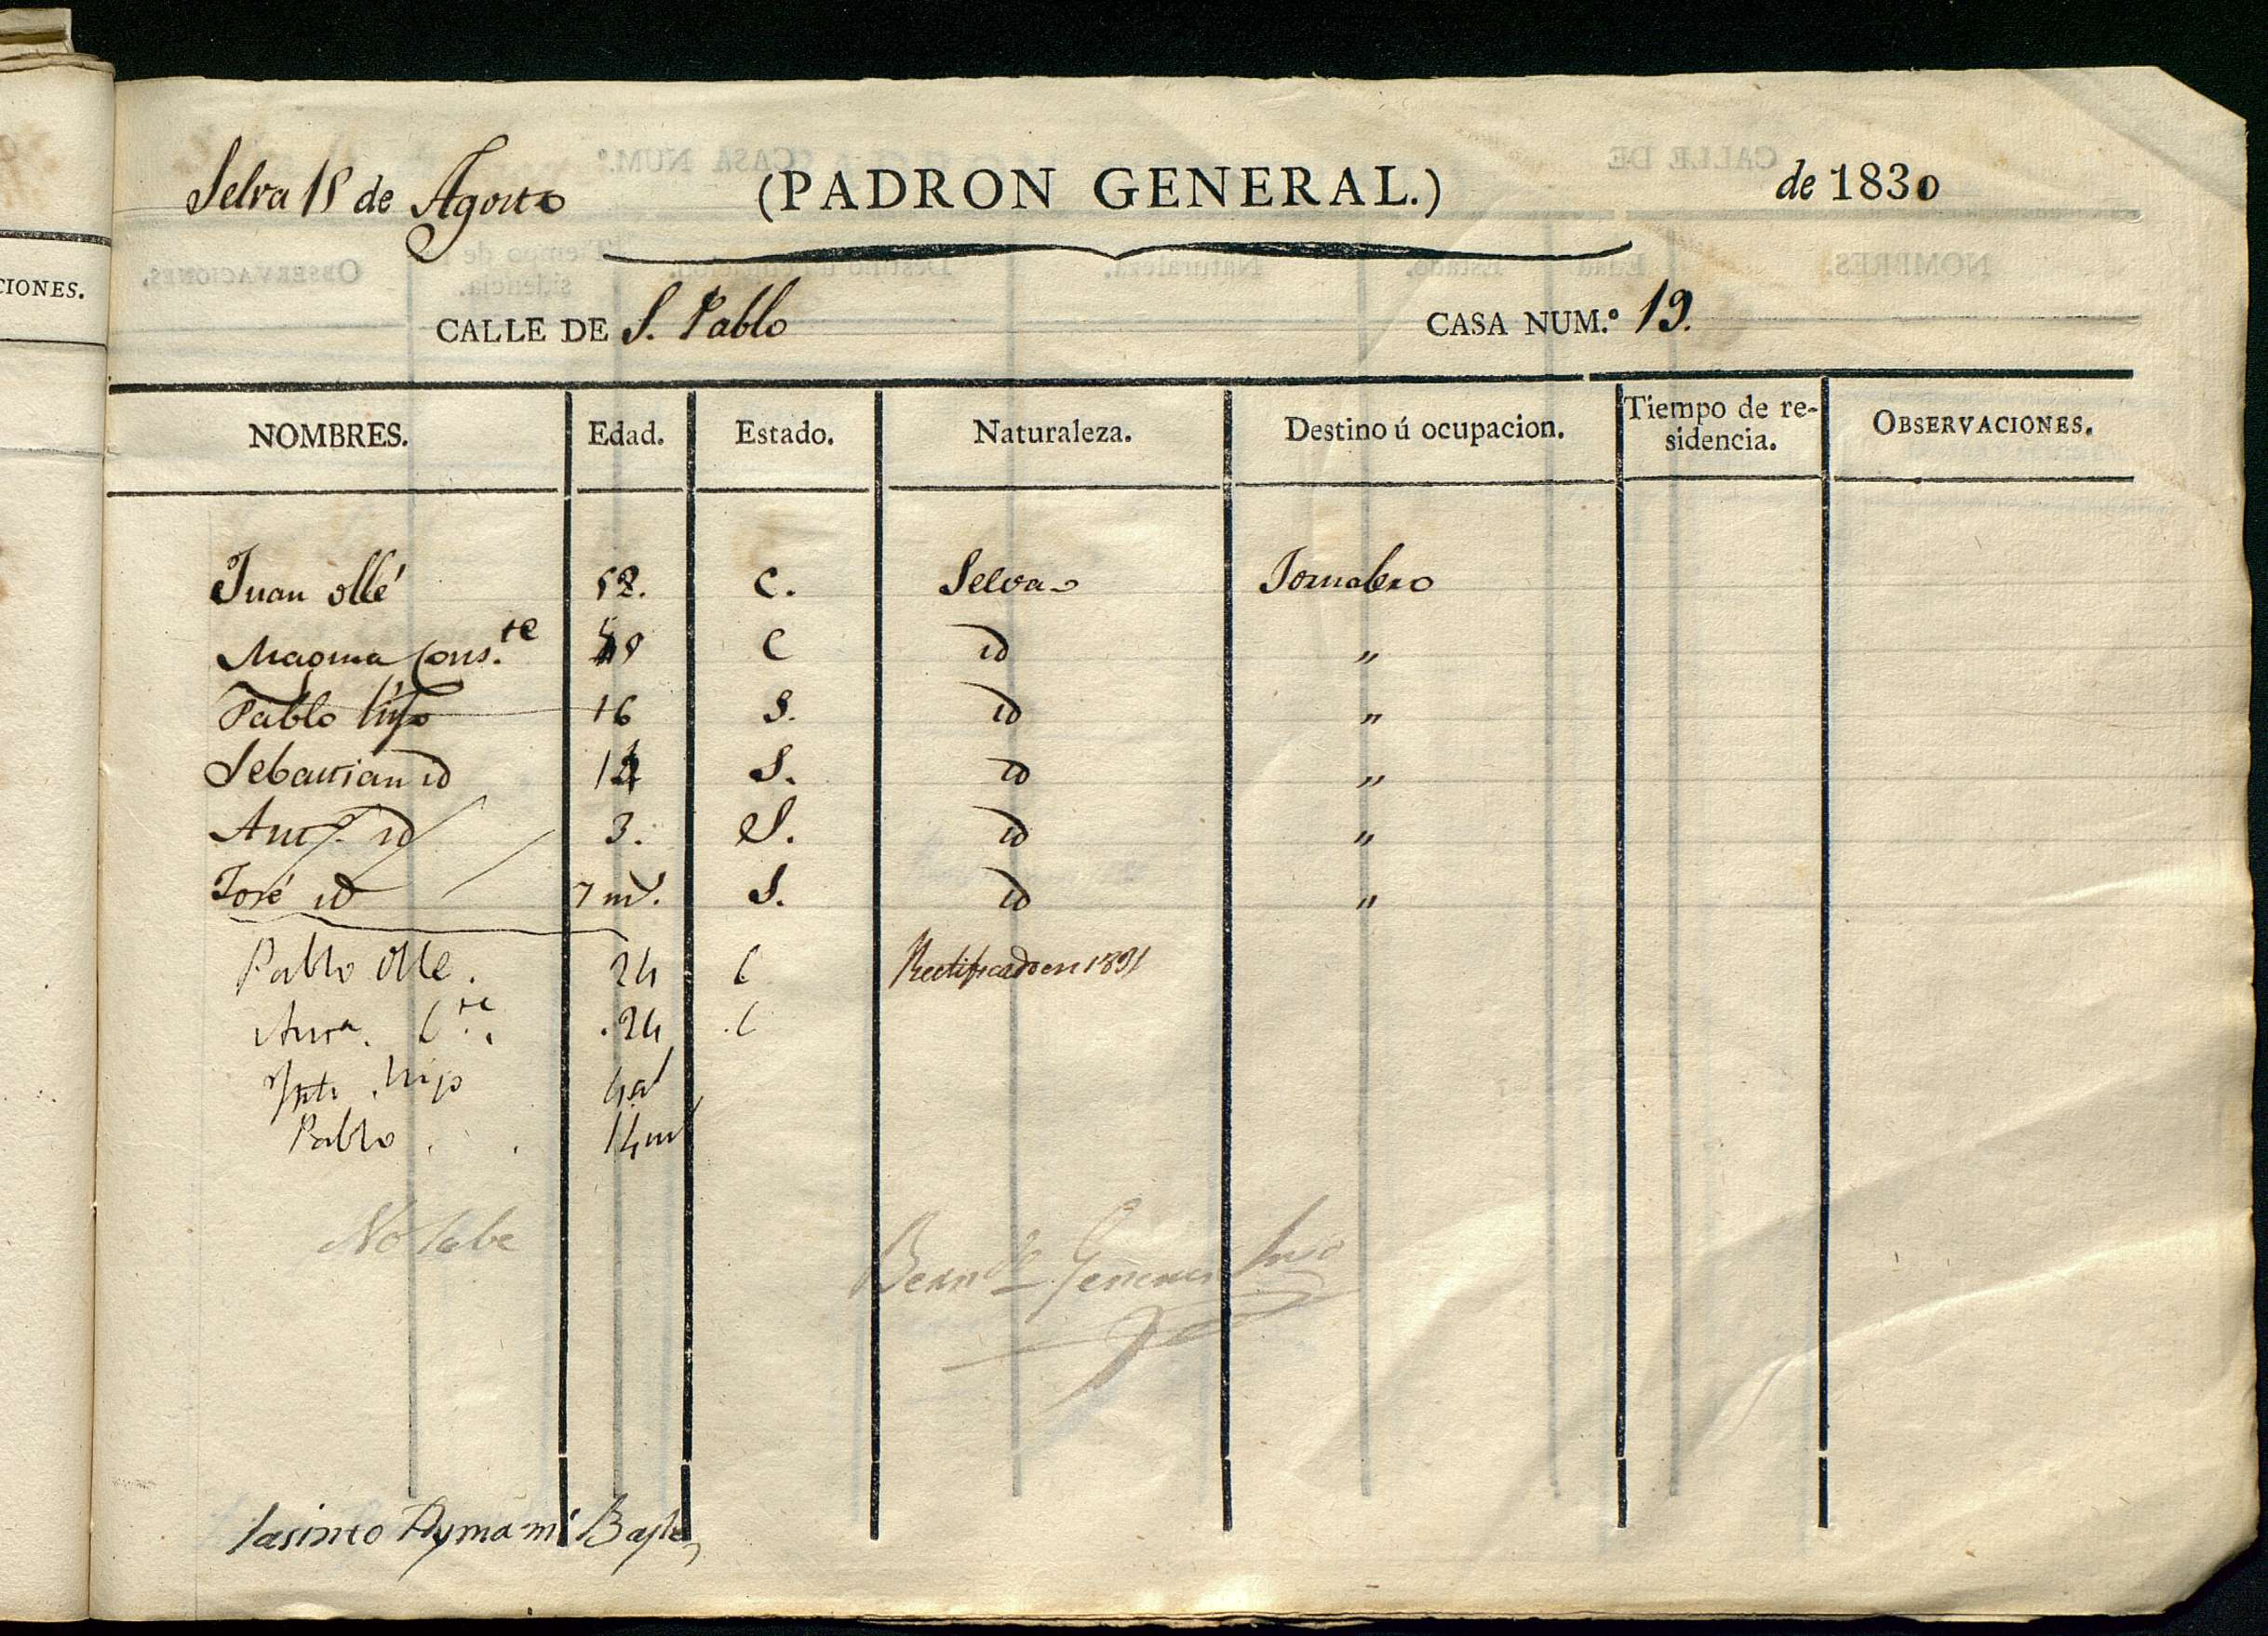 CIONES.
Selva 18 de Agosto (PADRON GENERAL.) de 1830
CALLE DE S. Pablo CASA NUM.º 19.
NOMBRES. Edad. Estado. Naturaleza. Destino ú ocupacion. Tiempo de re-sidencia. OBSERVACIONES.
Juan ollé 52. C. Selva Jornalero
Magina Cons.te C id "
Pablo hijo 16 S. id "
Sebastian id 14 S. id "
Ant.º id 3. S. id "
José id 7 ms. S. id "
Pablo Olle. 24 C Rectificado en 1831
Anna. C.te 24 C
hijo 4 a
Pablo 14 m
No sabe
Jasinto Aymamí Bayle